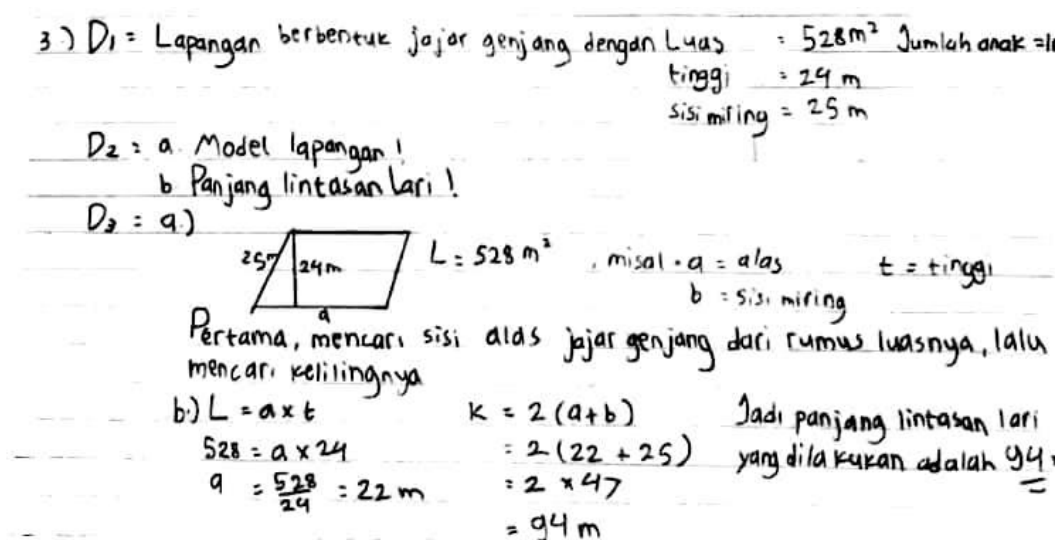 3.) D1 = Lapangan berbentuk jajar genjang dengan Luas : 528 m² Jumlah anak =
tinggi : 24 m
sisi miring = 25 m
D2 : a. Model lapangan!
b. Panjang lintasan lari!
D3 : a.)
25 m 24 m L = 528 m² , misal . a = alas t = tinggi
b = sisi miring
a
Pertama, mencari sisi alas jajar genjang dari rumus luasnya, lalu
mencari kelilingnya
b.) L = a x t K = 2 (a+b) Jadi panjang lintasan lari
528 = a x 24 = 2 (22 + 25) yang dilakukan adalah 94
a = 528/24 = 22 m = 2 x 47
= 94 m